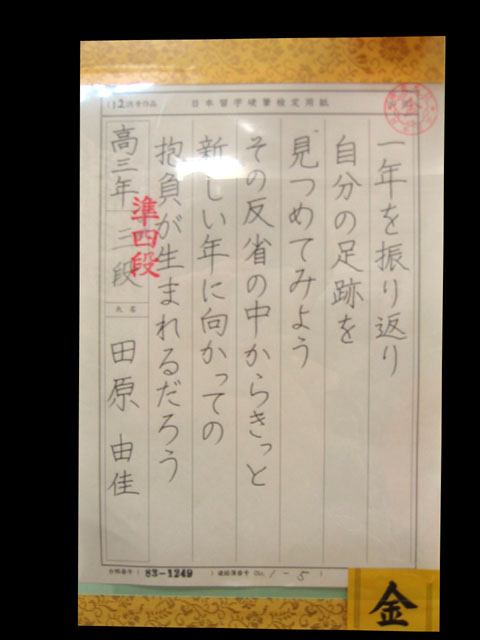 (12)清書作品
日本習字硬筆検定用紙
一年を振り返り
自分の足跡を
見つめてみよう
その反省の中からきっと
新しい年に向かっての
抱負が生まれるだろう
高三年 三段
準四段
氏名
田原 由佳
合格番号( 83-1249 )
連絡簿番号(No. 1-5 )
金